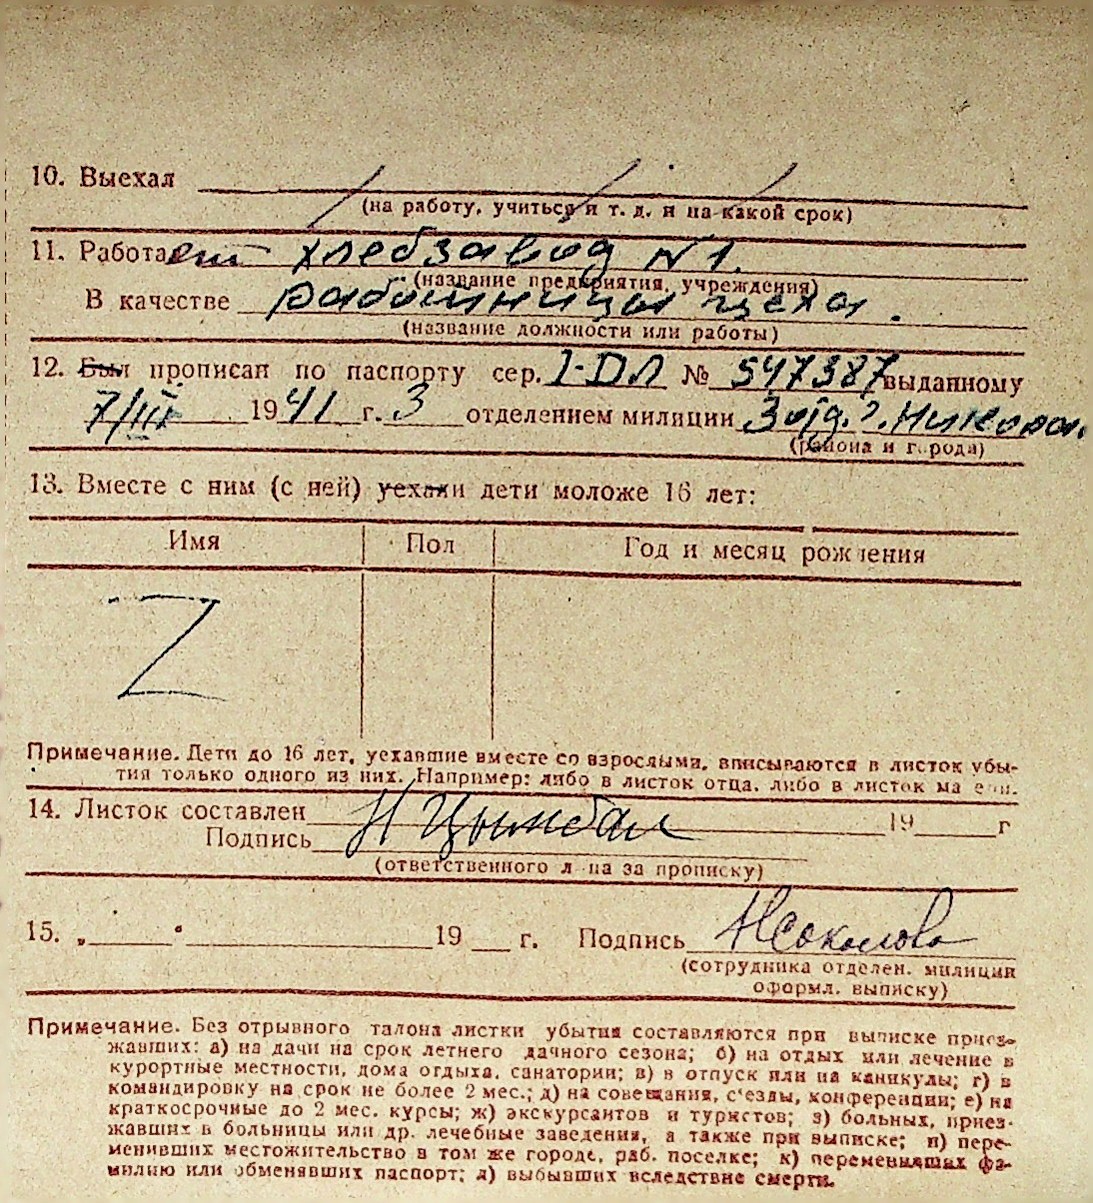 10. Выехал
(на работу, учиться и т. д. и на какой срок)
11. Работает хлебзавод №1.
(название предприятия, учреждения)
В качестве работницы цеха.
(название должности или работы)
12. Был прописан по паспорту сер. I-ДЛ № 547387 выданному
7/III 1941 г. 3 отделением милиции 3 отд. г.
(района и города)
13. Вместе с ним (с ней) уехали дети моложе 16 лет:
Имя Пол Год и месяц рождения
Z
Примечание. Дети до 16 лет, уехавшие вместе со взрослыми, вписываются в листок убы-
тия только одного из них. Например: либо в листок отца, либо в листок матери.
14. Листок составлен 19 г
Подпись Н Цымбал
(ответственного лица за прописку)
15. „ “ 19 г. Подпись НСоколова
(сотрудника отделен. милиции
оформл. выписку)
Примечание. Без отрывного талона листки убытия составляются при выписке приез-
жавших: а) на дачи на срок летнего дачного сезона; б) на отдых или лечение в
курортные местности, дома отдыха, санатории; в) в отпуск или на каникулы; г) в
командировку на срок не более 2 мес.; д) на совещания, с'езды, конференции; е) на
краткосрочные до 2 мес. курсы; ж) экскурсантов и туристов; з) больных, приез-
жавших в больницы или др. лечебные заведения, а также при выписке; и) пере-
менивших местожительство в том же городе, раб. поселке; к) переменивших фа-
милию или обменявших паспорт; л) выбывших вследствие смерти.